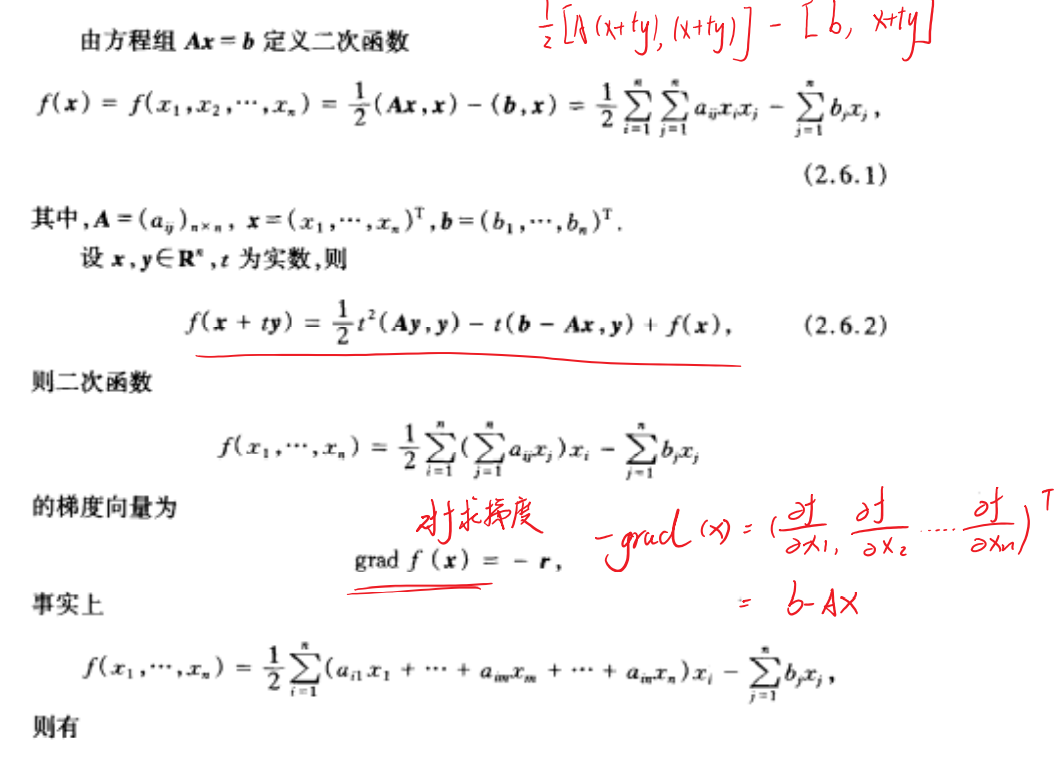 ½[A(x+ty),(x+ty)] - [b, x+ty]
由方程组 Ax = b 定义二次函数
f(x) = f(x₁,x₂,⋯,xₙ) = ½(Ax,x) - (b,x) = ½∑ᵢ₌₁ⁿ∑ⱼ₌₁ⁿ aᵢⱼxᵢxⱼ - ∑ⱼ₌₁ⁿ bⱼxⱼ,
(2.6.1)
其中,A = (aᵢⱼ)ₙ×ₙ, x = (x₁,⋯,xₙ)ᵀ,b = (b₁,⋯,bₙ)ᵀ.
设 x,y∈Rⁿ,t 为实数,则
f(x + ty) = ½t²(Ay,y) - t(b - Ax,y) + f(x), (2.6.2)
则二次函数
f(x₁,⋯,xₙ) = ½∑ᵢ₌₁ⁿ(∑ⱼ₌₁ⁿ aᵢⱼxⱼ)xᵢ - ∑ⱼ₌₁ⁿ bⱼxⱼ
的梯度向量为
对f求梯度
-grad(x) = (∂f/∂x₁, ∂f/∂x₂ ⋯⋯ ∂f/∂xₙ)ᵀ
grad f (x) = - r,
= b-Ax
事实上
f(x₁,⋯,xₙ) = ½∑ᵢ₌₁ⁿ(aᵢ₁x₁ + ⋯ + aᵢₘxₘ + ⋯ + aᵢₙxₙ)xᵢ - ∑ⱼ₌₁ⁿ bⱼxⱼ,
则有